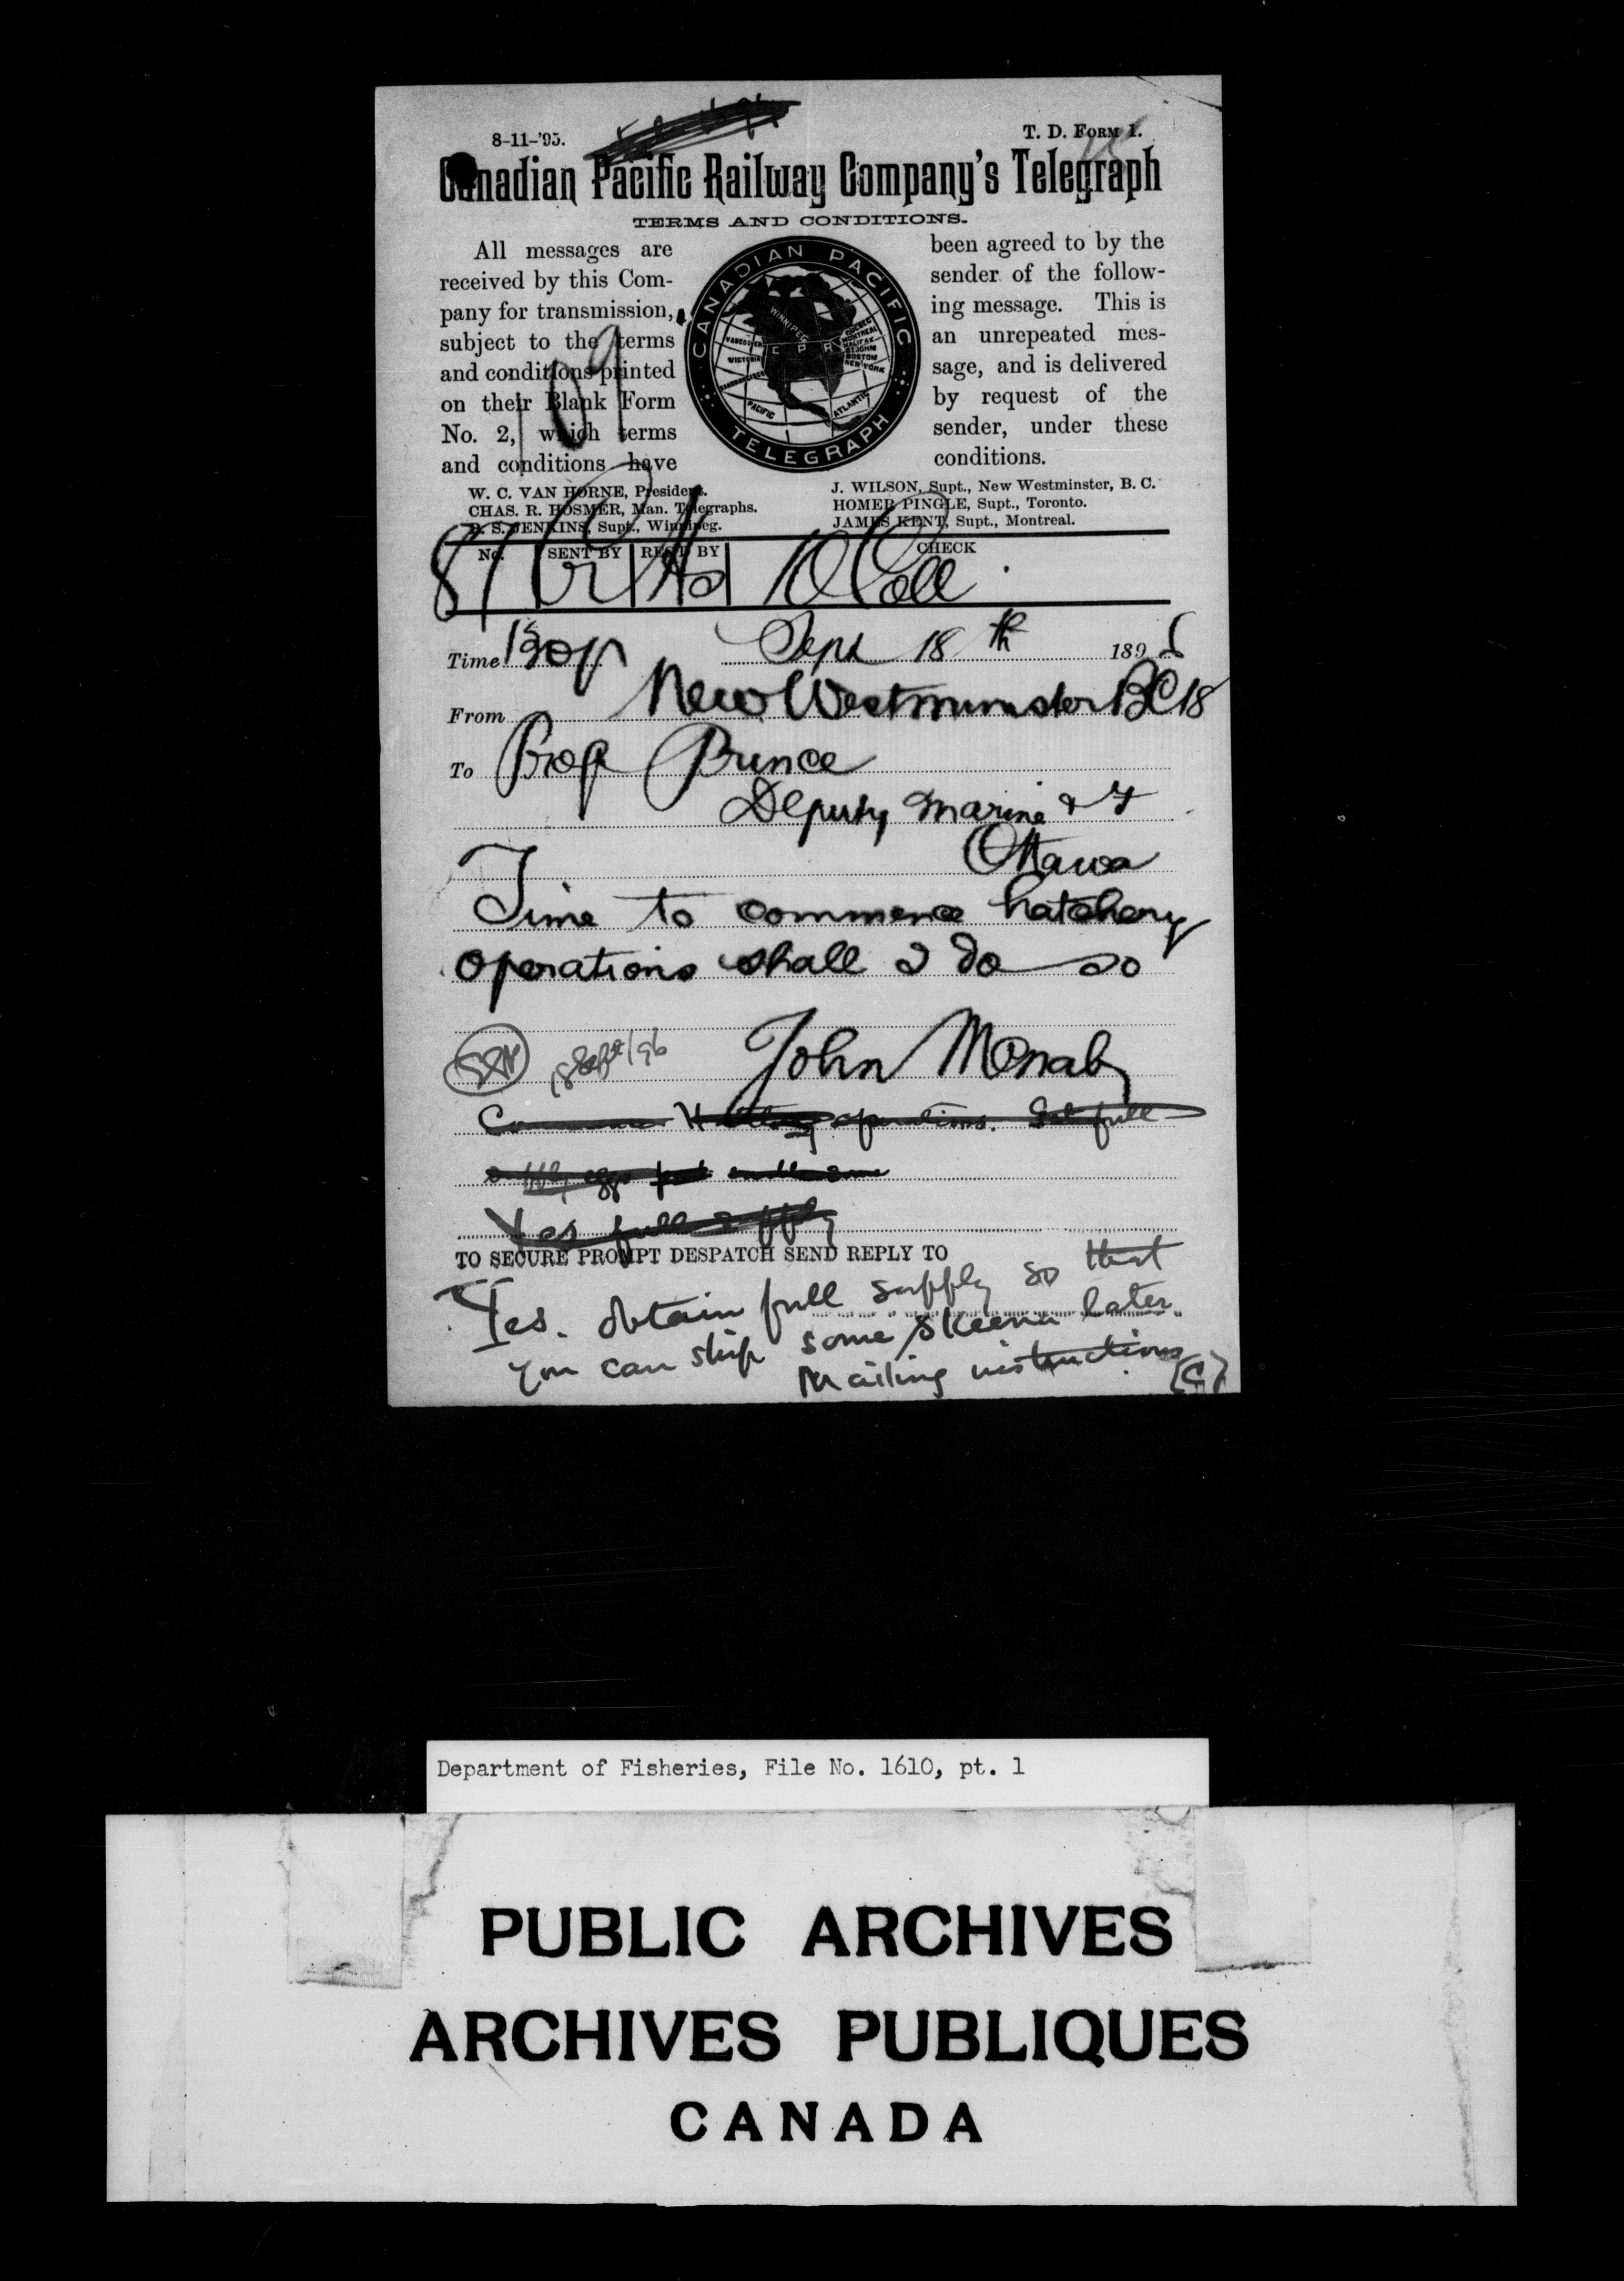 8-11-'95.
T. D. FORM 1.
Canadian Pacific Railway Company's Telegraph
TERMS AND CONDITIONS.
All messages are
received by this Com-
pany for transmission,
subject to the terms
and conditions printed
on their Blank Form
No. 2, which terms
and conditions have
CANADIAN PACIFIC
WINNIPEG
VANCOUVER
VICTORIA
SAN FRANCISCO
C P R
QUEBEC
MONTREAL
HALIFAX
ST JOHN
BOSTON
NEW YORK
PACIFIC
ATLANTIC
TELEGRAPH
been agreed to by the
sender of the follow-
ing message. This is
an unrepeated mes-
sage, and is delivered
by request of the
sender, under these
conditions.
W. C. VAN HORNE, President.
CHAS. R. HOSMER, Man. Telegraphs.
B. S. JENKINS, Supt., Winnipeg.
J. WILSON, Supt., New Westminster, B. C.
HOMER PINGLE, Supt., Toronto.
JAMES KENT, Supt., Montreal.
No. SENT BY REC'D BY CHECK
87 10 Coll
Time 130p Sept 18th 1896
From New Westminster BC 18
To Prof Prince
Deputy Marine & F
Ottawa
Time to commence hatchery
operations shall I do so
John McNab
18 Sept/96
Commence Hatchery operations. Get full
supply eggs
Yes full supply
TO SECURE PROMPT DESPATCH SEND REPLY TO
Yes. obtain full supply so that
you can ship some Skeena later.
Mailing instructions
Department of Fisheries, File No. 1610, pt. 1
PUBLIC ARCHIVES
ARCHIVES PUBLIQUES
CANADA